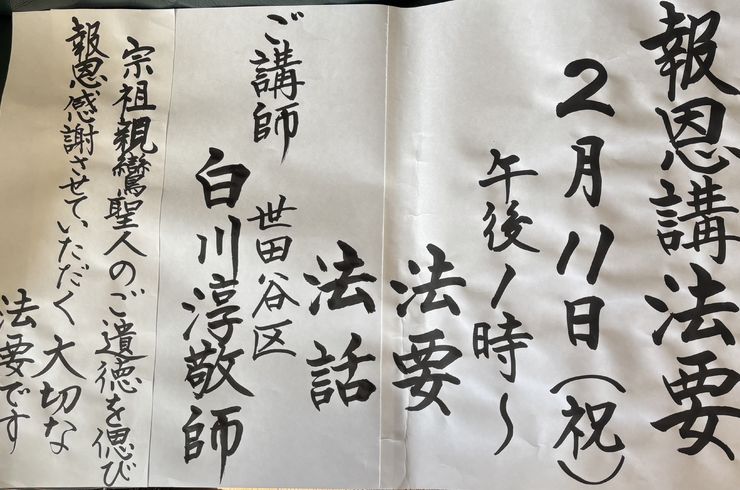 報恩講法要
2月11日(祝)
午後1時〜
法要
法話
ご講師
世田谷区
白川淳敬師
宗祖親鸞聖人のご遺徳を偲び
報恩感謝させていただく大切な
法要です